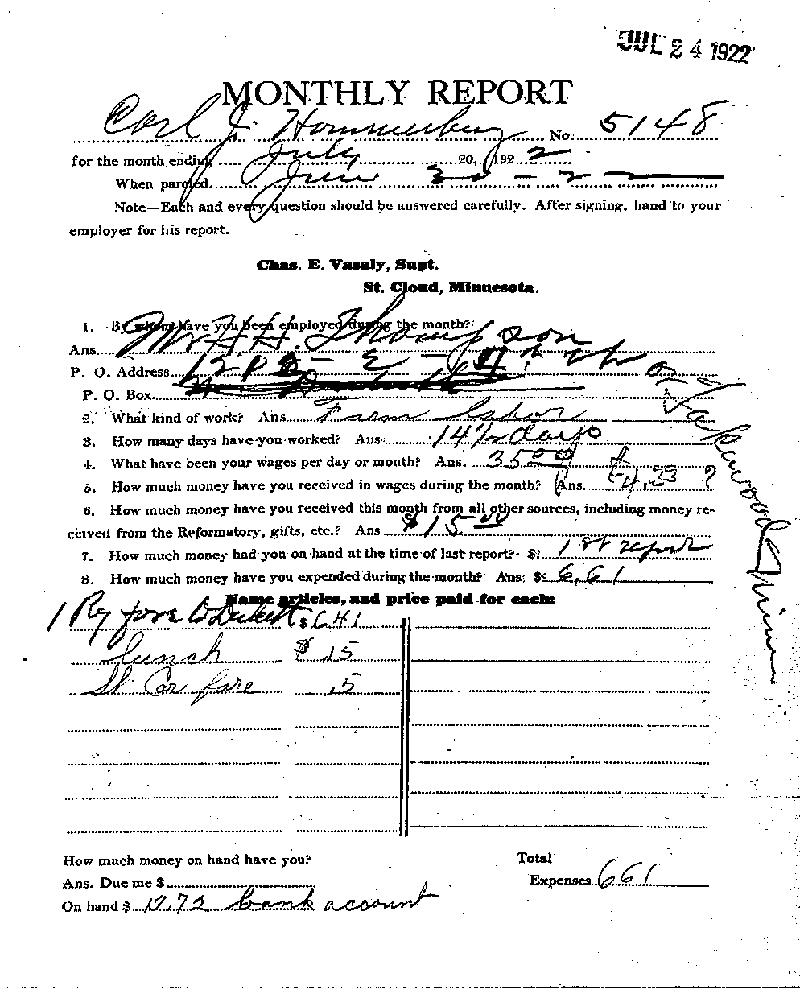 JUL 24 1922
MONTHLY REPORT
Carl J. No. 5148
for the month ending July 20, 1922
When paroled June 30-22
Note—Each and every question should be answered carefully. After signing, hand to your
employer for his report.
Chas. E. Vasaly, Supt.
St. Cloud, Minnesota.
1. By whom have you been employed during the month?
Ans. Mr H.H. Thompson
P. O. Address
P. O. Box
2. What kind of work? Ans. Farm labor
3. How many days have you worked? Ans. 14½ days
4. What have been your wages per day or month? Ans. 35.00
5. How much money have you received in wages during the month? Ans. $4.33 ?
6. How much money have you received this month from all other sources, including money re-
ceived from the Reformatory, gifts, etc.? Ans $15.00
7. How much money had you on hand at the time of last report? $ 1st report
8. How much money have you expended during the month? Ans. $ 6.61
Name articles, and price paid for each:
1 Ry fare $6.41
lunch $ .15
St Car fare .5
How much money on hand have you?
Ans. Due me $
On hand $ 12.72 bank acount
Total
Expenses 6 61